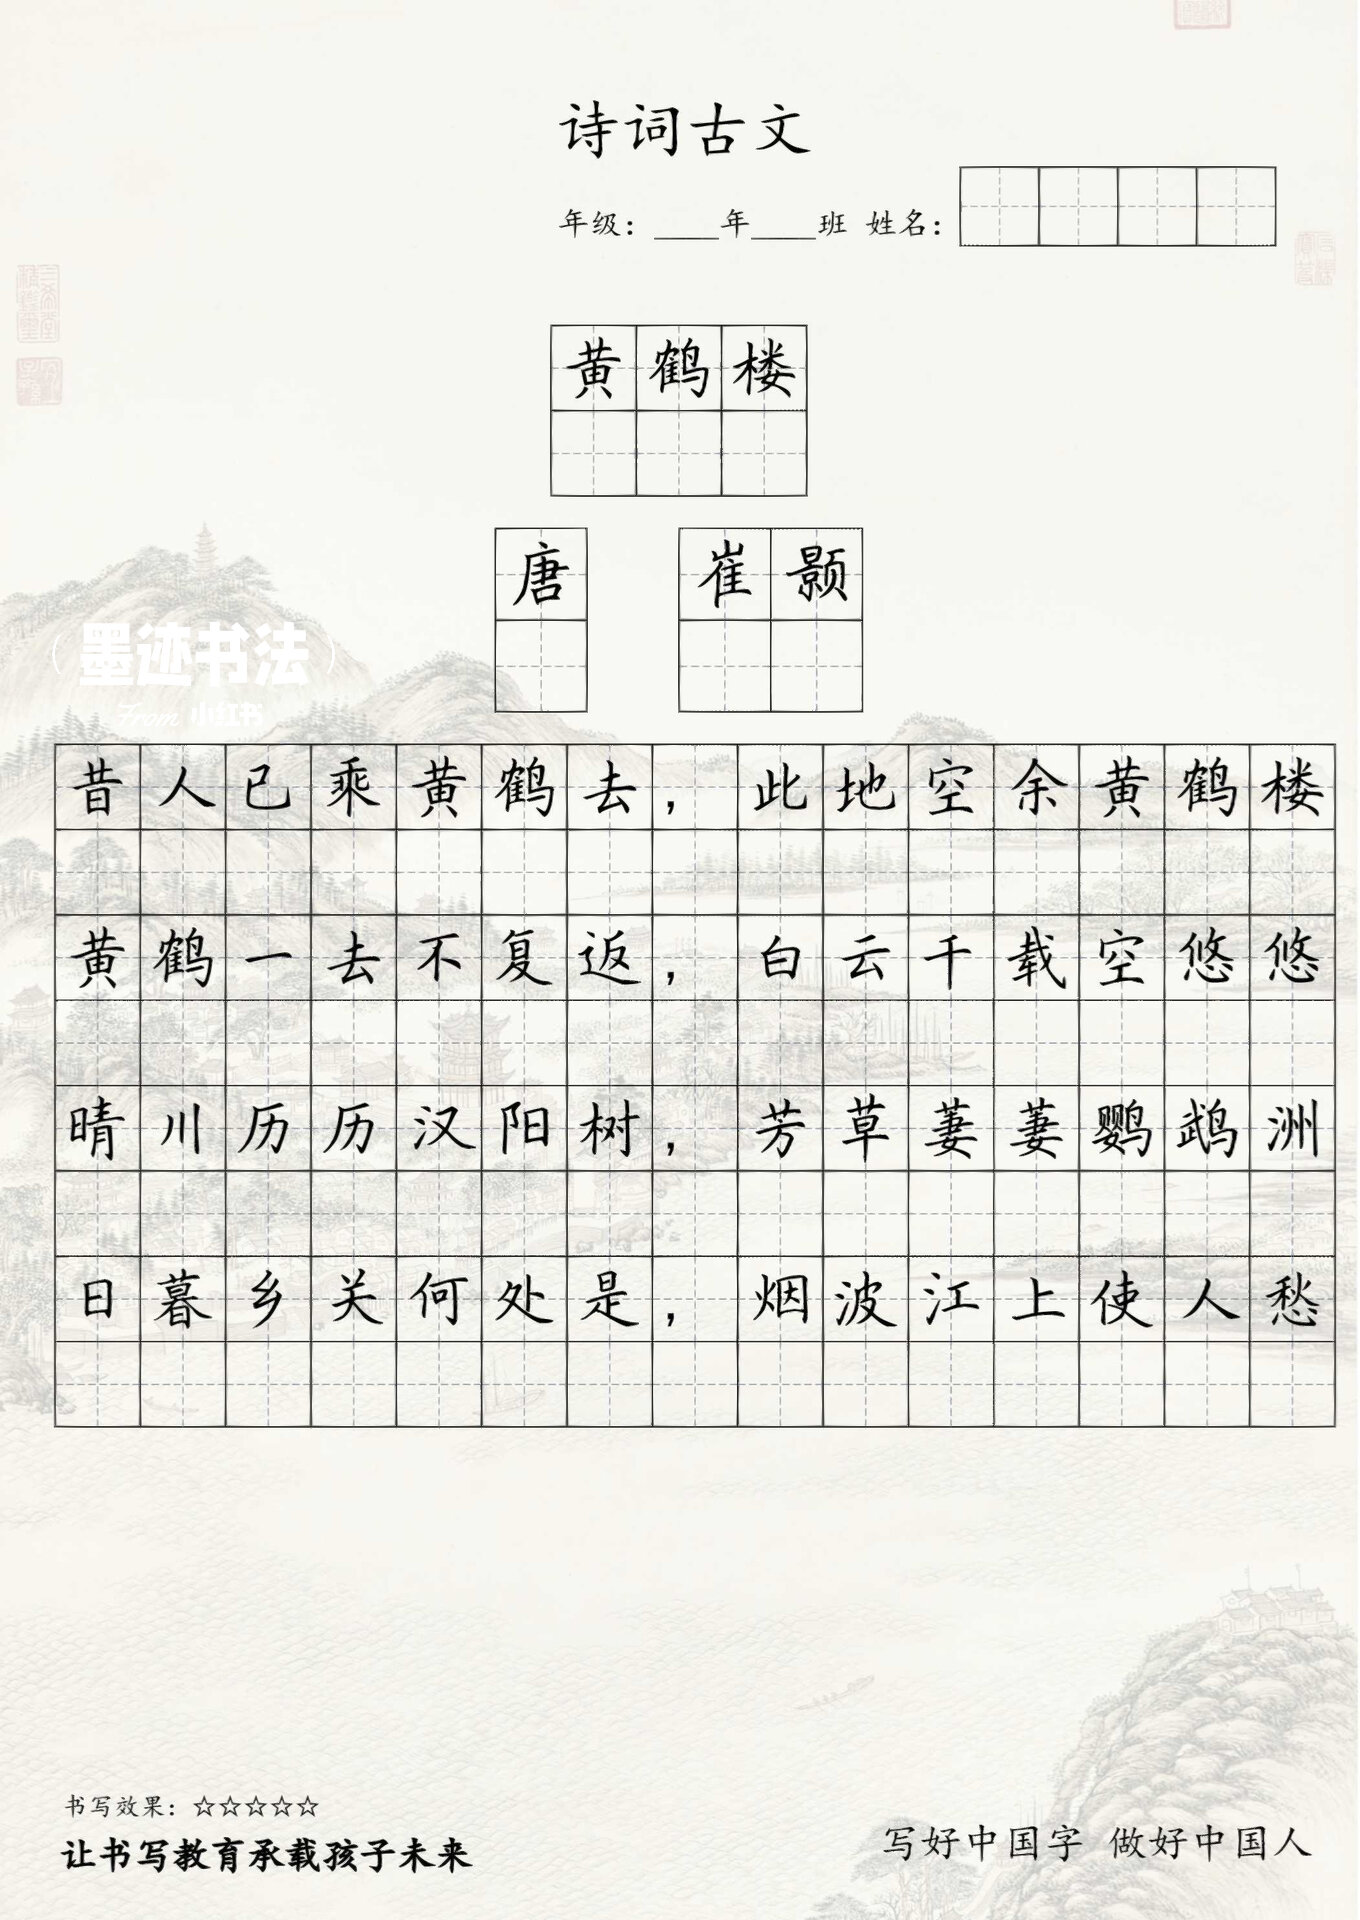 诗词古文
年级：____年____班 姓名：
黄鹤楼
唐 崔颢
墨迹书法
From 小红书
昔人已乘黄鹤去，此地空余黄鹤楼
黄鹤一去不复返，白云千载空悠悠
晴川历历汉阳树，芳草萋萋鹦鹉洲
日暮乡关何处是，烟波江上使人愁
书写效果：☆☆☆☆☆
让书写教育承载孩子未来
写好中国字 做好中国人